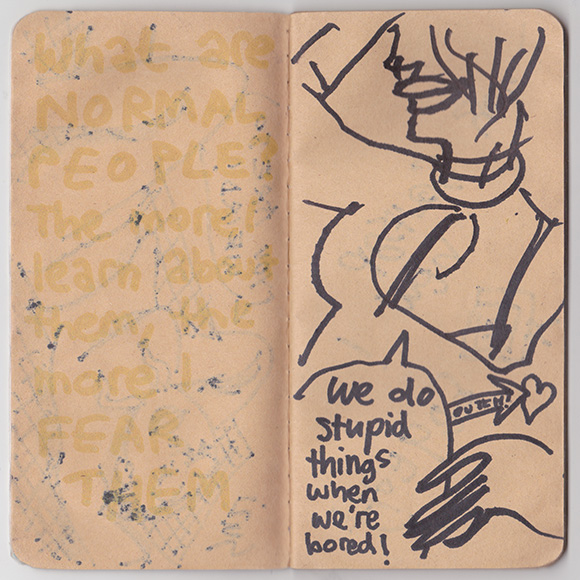 What are
NORMAL
PEOPLE?
The more I
learn about
them, the
more I
FEAR
THEM
We do
stupid
things
when
we're
bored!
OUTCH!